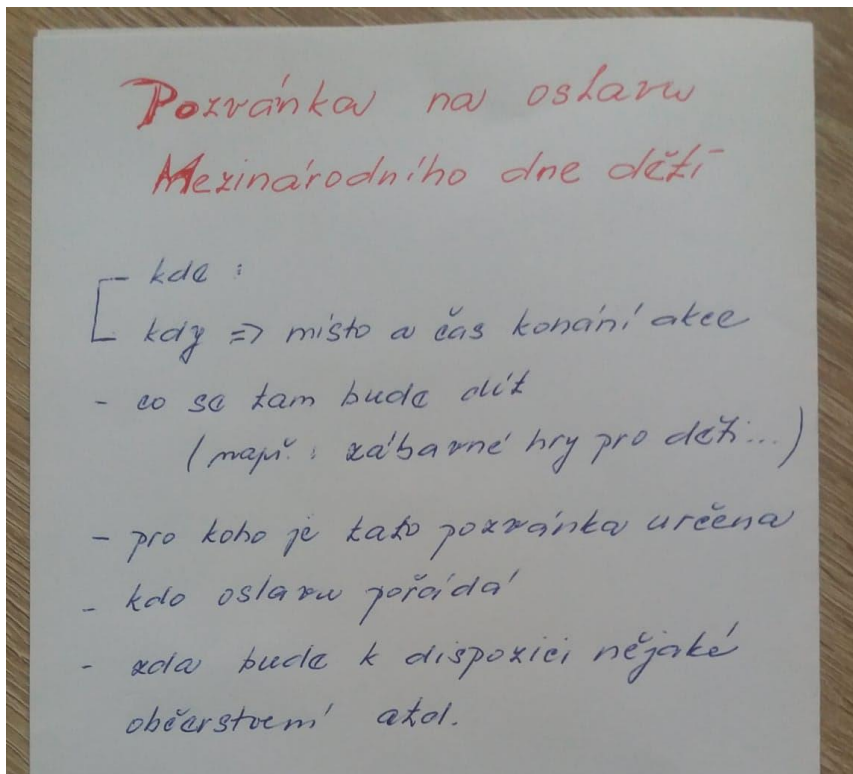 Pozvánka na oslavu
Mezinárodního dne dětí
- kde :
- kdy => místo a čas konání akce
- co se tam bude dít
(např. : zábavné hry pro děti...)
- pro koho je tato pozvánka určena
- kdo oslavu pořádá
- zda bude k dispozici nějaké
občerstvení atd.